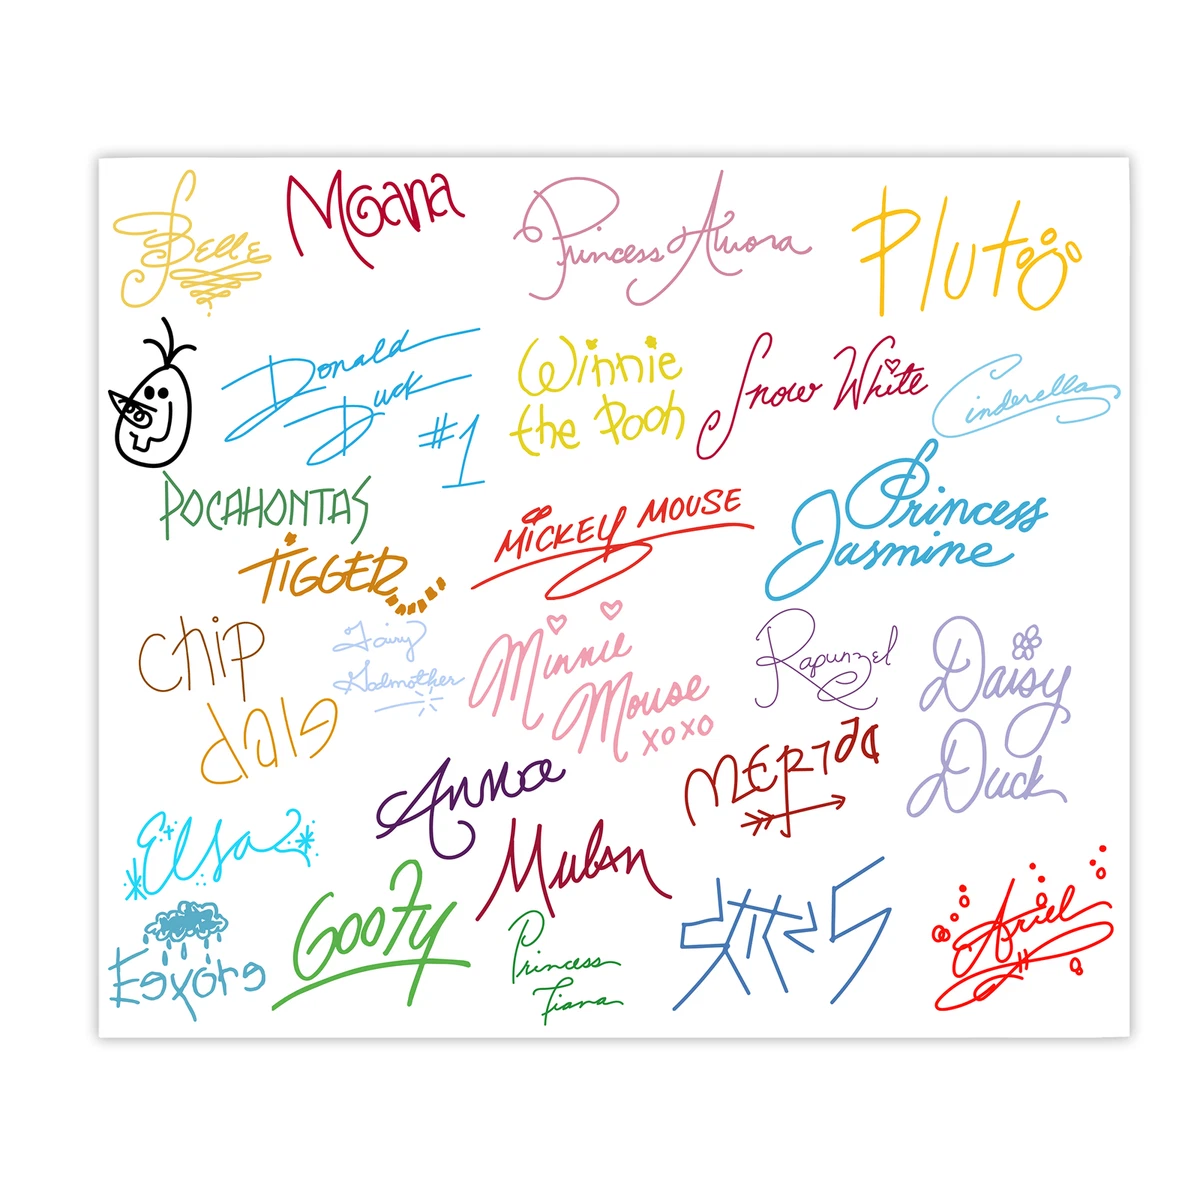 Belle
Moana
Princess Aurora
Pluto
Donald
Duck
#1
Winnie
the Pooh
Snow White
Cinderella
POCAHONTAS
MICKEY MOUSE
Princess
Jasmine
TIGGER
Chip
Dale
Fairy
Godmother
Minnie
Mouse
xoxo
Rapunzel
Daisy
Duck
Anna
MERIDA
Elsa
Mulan
Goofy
Princess
Tiana
Eeyore
Ariel